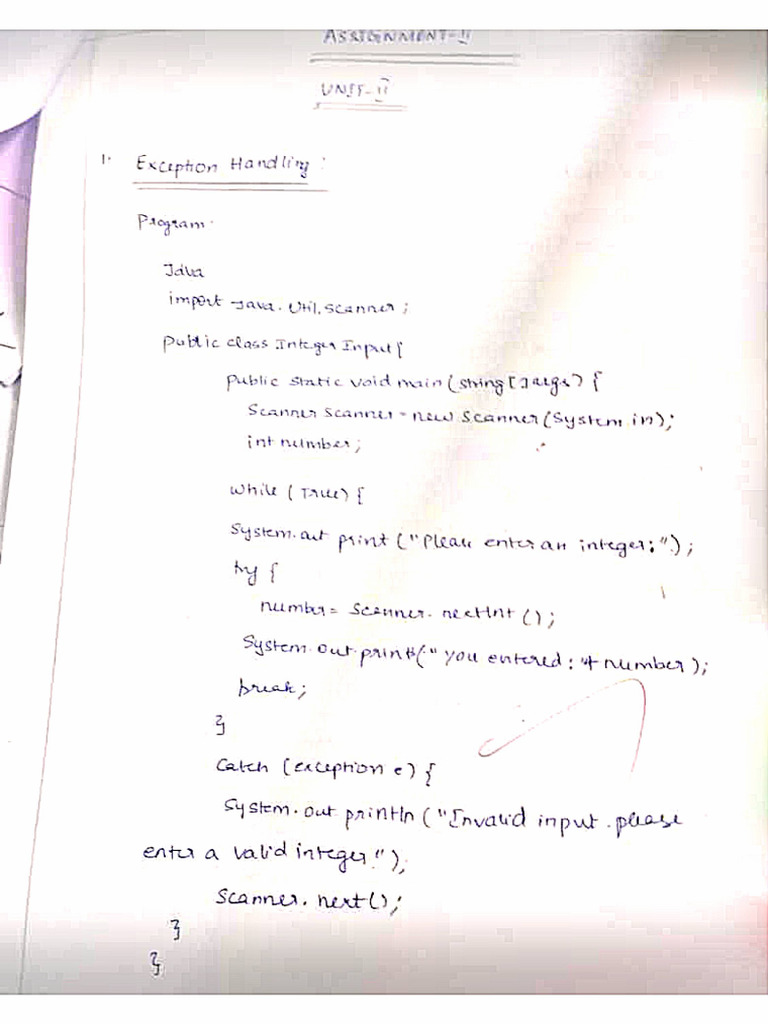 ASSIGNMENT-II
UNIT-II
1. Exception Handling:
Program:
Java
import java.util.scanner;
public class Integer Input{
public static void main(string[]args) {
Scanner scanner = new Scanner(System.in);
int number;
while (True) {
System.out print ("Please enter an integer:");
try {
number = Scanner.nextInt ();
System.out.println("you entered: "+ number);
break;
}
Catch (exception e) {
System.out println ("Invalid input.please
enter a valid integer.");
Scanner.next();
}
}